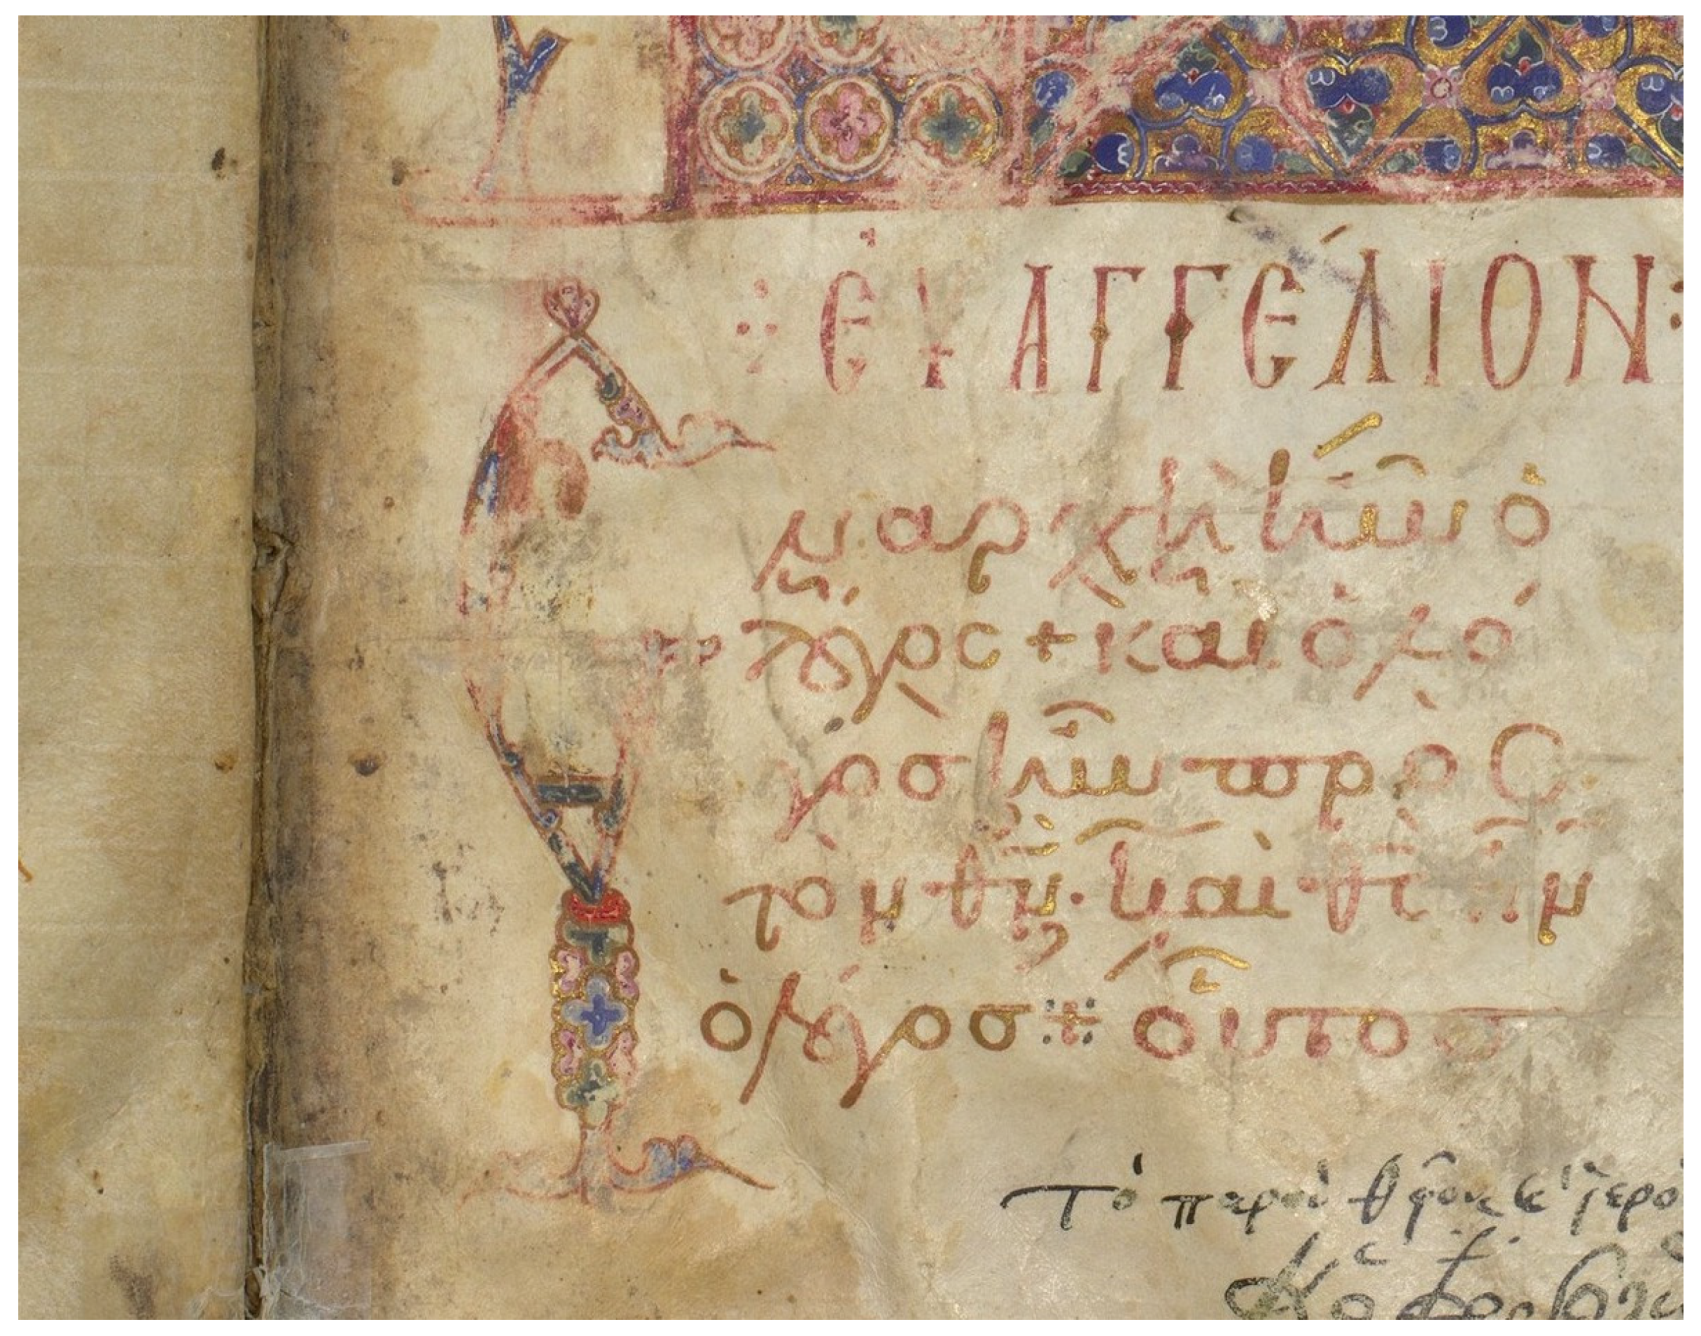 ΕΥΑΓΓΕΛΙΟΝ
Ἐν ἀρχῇ ἦν ὁ
λόγος + καὶ ὁ λό
γος ἦν πρὸς
τὸν θν̅· καὶ θς̅ ἦν
ὁ λόγος ⁜ οὗτος
τὸ παρὸν θεῖον